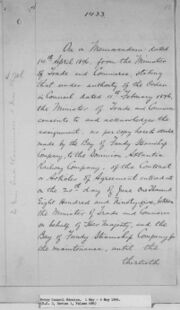 1433
On a Memorandum dated
14th April 1896, from the Minister
of Trade and Commerce, stating
that under authority of the Order
in Council dated 15th February 1896,
the Minister of Trade and Commerce
consents to and acknowledges the
assignment, as per copy hereto attached
made by the Bay of Fundy Steamship
Company, to the Dominion Atlantic
Railway Company, of the Contract
or Articles of Agreement entered into
on the 20th day of June One Thousand
Eight Hundred and Ninety five, between
the Minister of Trade and Commerce
on behalf of Her Majesty, and the
Bay of Fundy Steamship Company for
the maintenance, until the
thirtieth
Privy Council Minutes, 1 May - 4 May 1896.